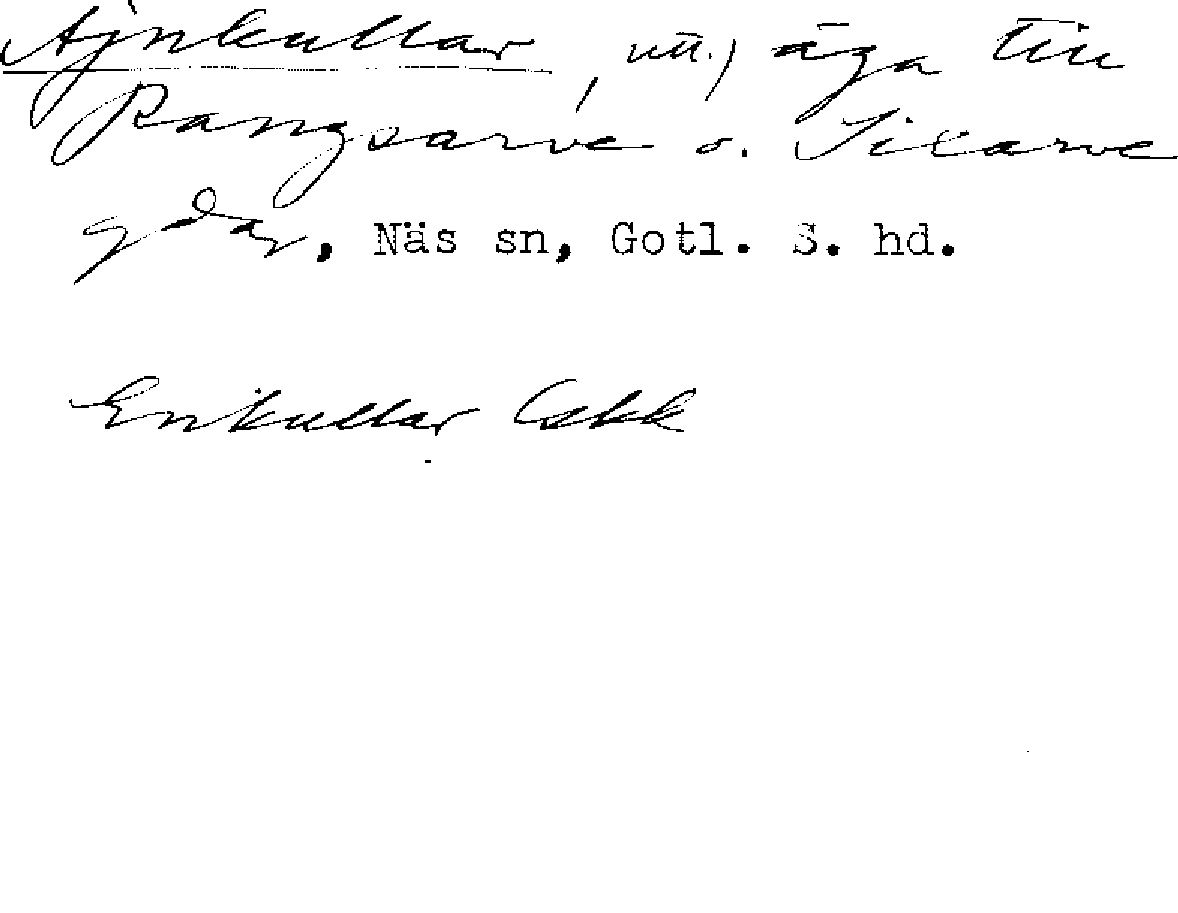 Ajnkullar, äga till
Rangsarve o. Sixarve
gdar, Näs sn, Gotl. S. hd.
Enkullar